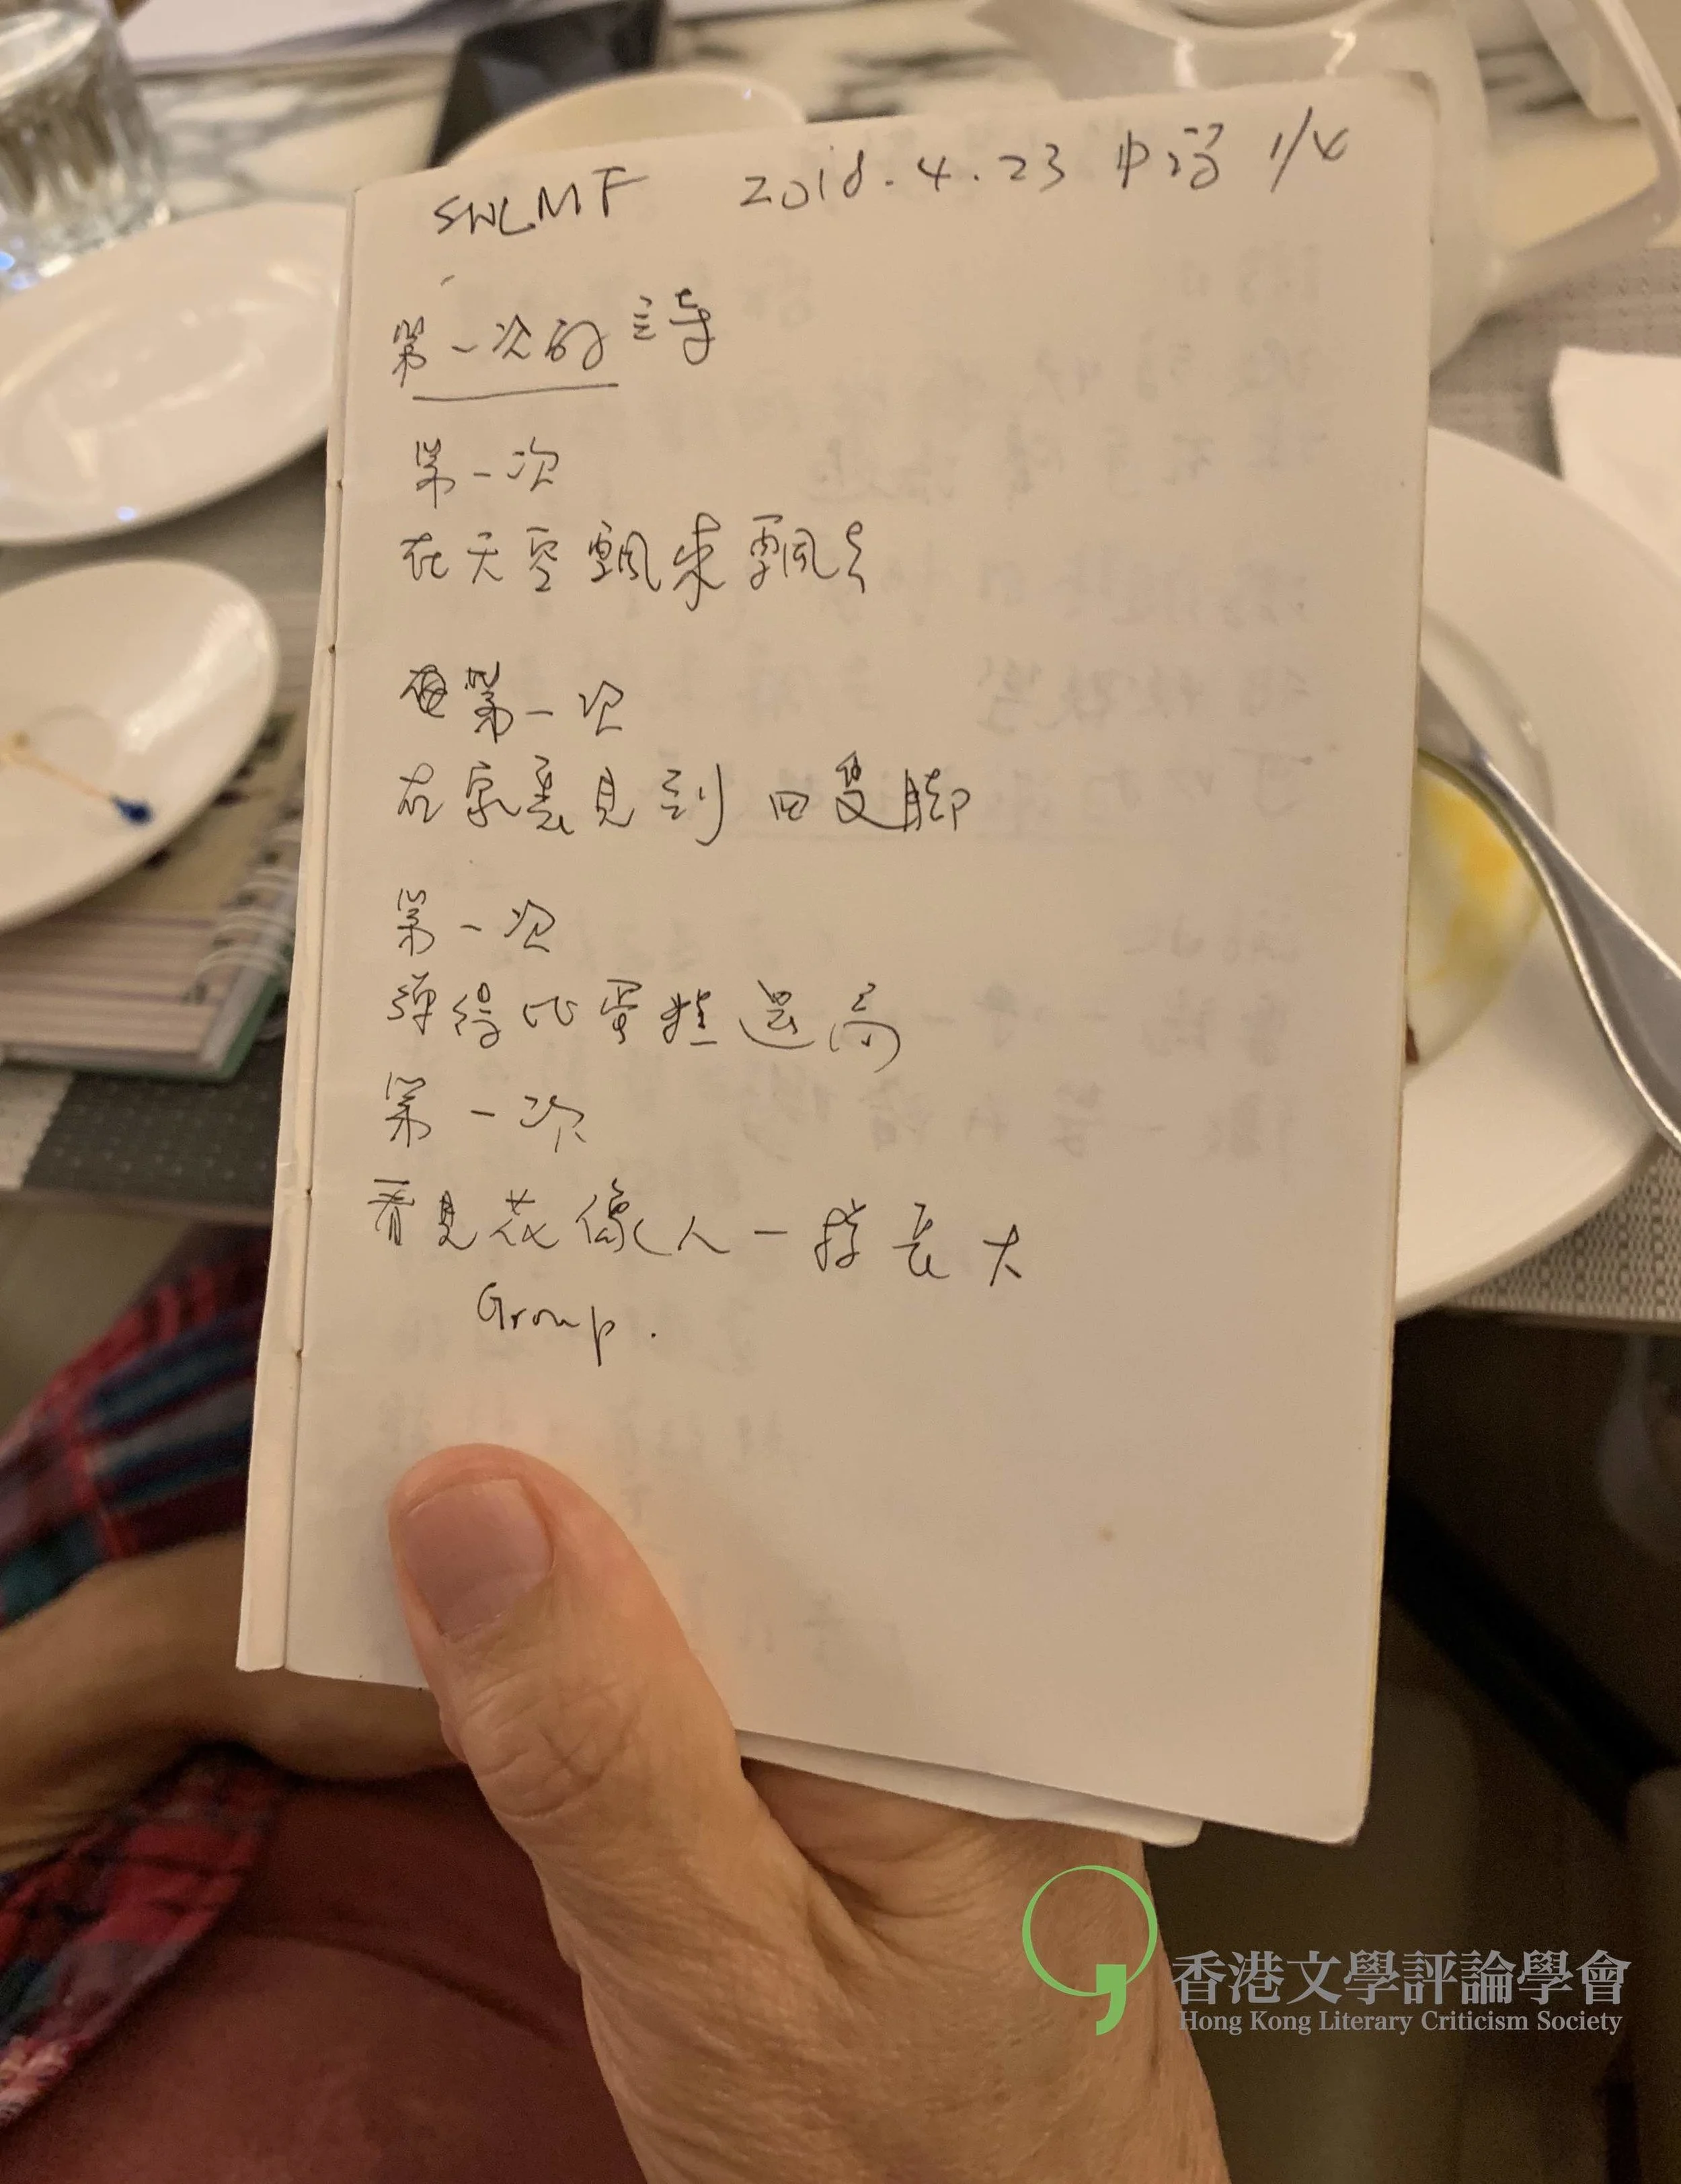 SWLMF 2018.4.23 中沼 1/4
第一次的詩
第一次
在天空飄來飄去
每第一次
在家裏見到四隻腳
第一次
彈得比蛋糕還高
第一次
看見花像人一樣長大
Group.
香港文學評論學會
Hong Kong Literary Criticism Society